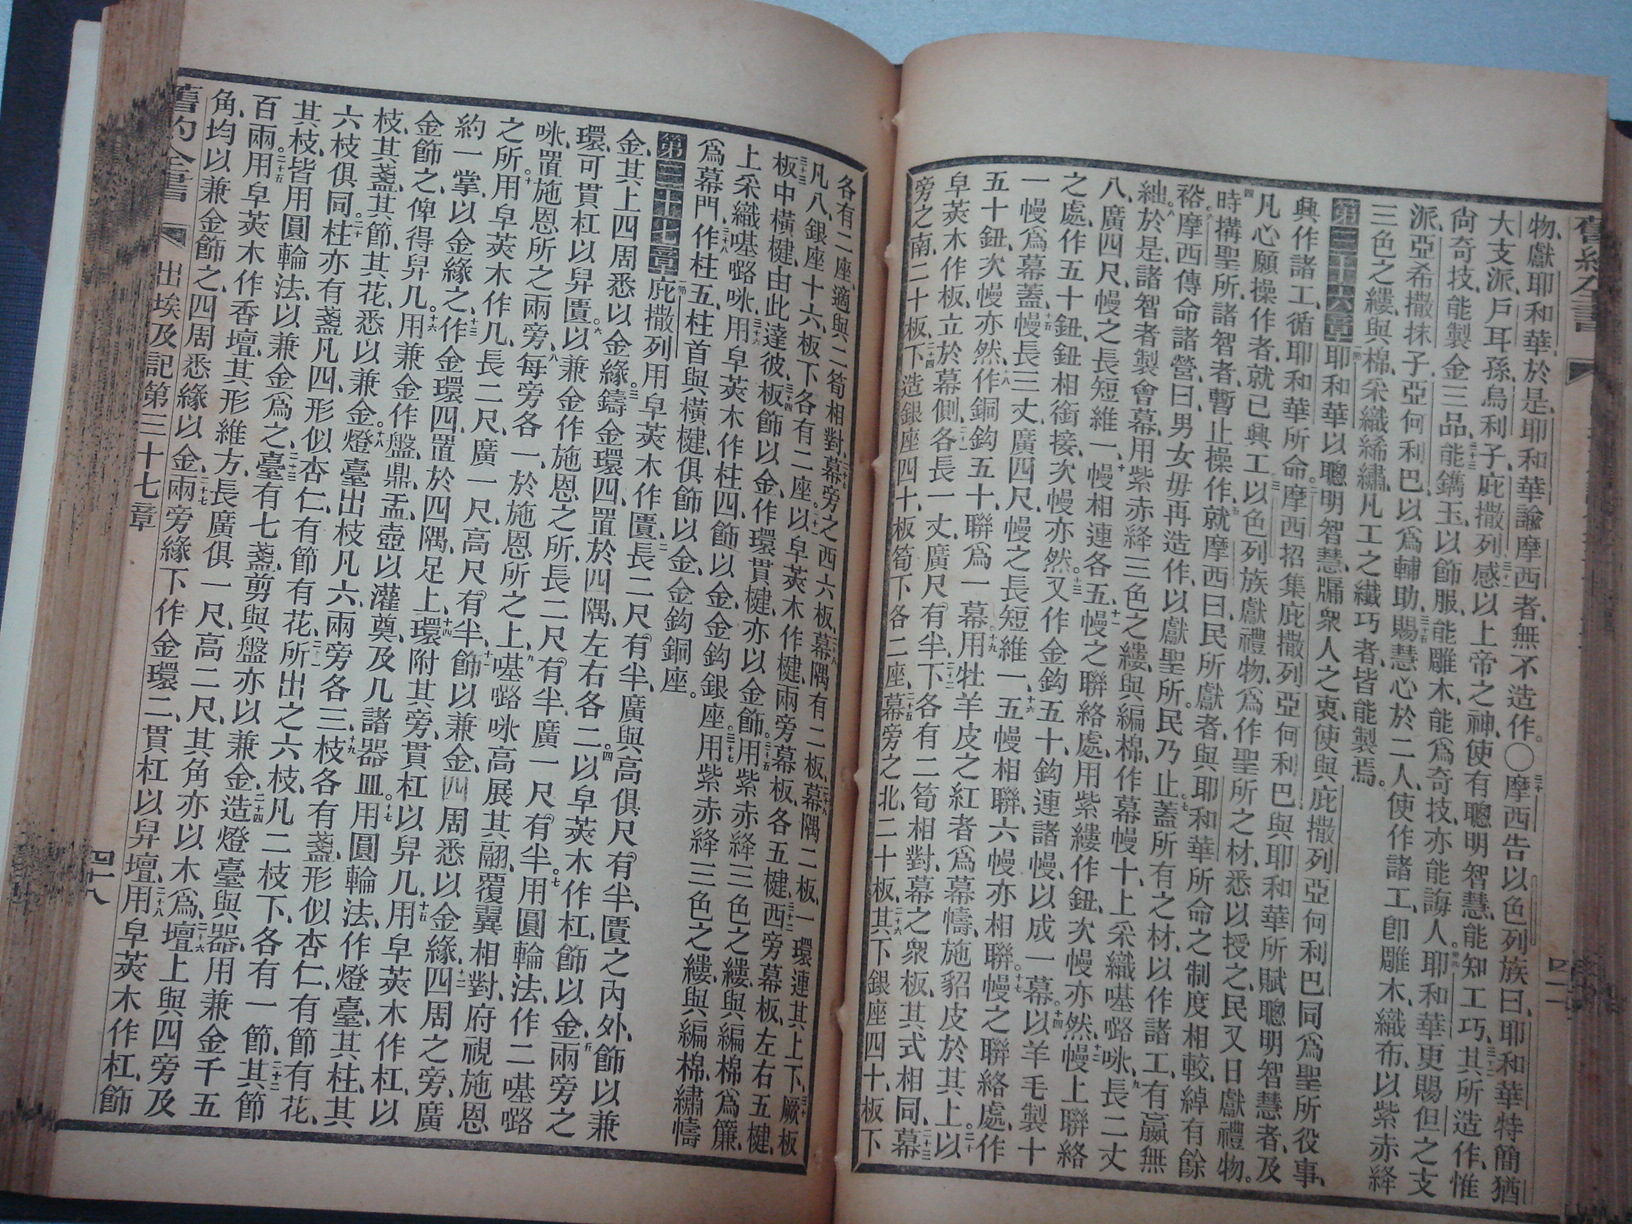 物、獻耶和華、於是、耶和華諭摩西者、無不造作。〇三十摩西告以色列族曰、耶和華特簡猶
大支派、戶耳孫、烏利子、庇撒列、三一感以上帝之神、使有聰明智慧、能知工巧、其所造作、惟
尚奇技、能製金三品、三三能鐫玉以飾服、能雕木、能爲奇技、亦能誨人、耶和華更賜但之支
派、亞希撒抹子、亞何利巴、以爲輔助、三五賜慧心於二人、使作諸工、卽雕木、織布、以紫赤絳
三色之縷、與棉、采織絺繡、凡工之纖巧者、皆能製焉。
第三十六章 耶和華以聰明智慧、牖衆人之衷、使與庇撒列、亞何利巴、同爲聖所役事、
興作諸工、循耶和華所命、二摩西招集庇撒列、亞何利巴、與耶和華所賦聰明智慧者、及
凡心願操作者、就已興工、三以色列族獻禮物、爲作聖所之材、悉以授之、民又日獻禮物。
四時搆聖所、諸智者、暫止操作、五就摩西曰、民所獻者、與耶和華所命之制度相較、綽有餘
裕、六摩西傳命諸營曰、男女毋再造作、以獻聖所。民乃止、七蓋所有之材、以作諸工、有贏無
絀、八於是諸智者製會幕、用紫赤絳三色之縷、與編棉、作幕幔十、上采織㗭㘔㕲、九長二丈
八、廣四尺、幔之長短維一、十幔相連各五、十一幔之聯絡處、用紫縷作鈕、次幔亦然、十二幔上聯絡
之處、作五十鈕、鈕相銜接、次幔亦然、十三又作金鈎五十、鈎連諸幔、以成一幕。十四以羊毛製十
一幔爲幕蓋、十五幔長三丈、廣四尺、幔之長短維一、十六五幔相聯、六幔亦相聯、十七幔之聯絡處、作
五十鈕、次幔亦然、十八作銅鈎五十、聯爲一幕、十九用牡羊皮之紅者、爲幕幬、施貂皮於其上、二十以
皁莢木作板、立於幕側、二一各長一丈、廣尺有半、二二下各有二筍相對、幕之衆板、其式相同、二三幕
旁之南、二十板、二四下造銀座四十、板筍下各二座、二五幕旁之北、二十板、二六其下銀座四十、板下
各有二座、適與二筍相對、二七幕旁之西六板、二八幕隅有二板、二九幕隅二板、一環連其上下、三十厥板
凡八、銀座十六、板下各有二座。三一以皁莢木作楗、兩旁幕板各五楗、三二西旁幕板、左右五楗、
三三板中橫楗、由此達彼、三四板飾以金、作環貫楗、亦以金飾、三五用紫赤絳三色之縷、與編棉爲簾、
上采織㗭㘔㕲、三六用皁莢木作柱四、飾以金、金鈎銀座。三七用紫赤絳三色之縷、與編棉繡幬
爲幕門、三八作柱五、柱首與橫楗、俱飾以金、金鈎銅座。
第三十七章 庇撒列用皁莢木作匱、長二尺有半、廣與高俱尺有半、二匱之內外、飾以兼
金、其上四周、悉以金緣、三鑄金環四、置於四隅、左右各二、四以皁莢木作杠、飾以金、五兩旁之
環、可貫杠以舁匱、六以兼金作施恩之所、長二尺有半、廣一尺有半。七用圓輪法、作二㗭㘔
㕲、置施恩所之兩旁、八每旁各一、於施恩所之上、九㗭㘔㕲高展其翮、覆翼相對、府視施恩
之所、十用皁莢木作几、長二尺、廣一尺、高尺有半、十一飾以兼金、四周悉以金緣、十二四周之旁、廣
約一掌、以金緣之、十三作金環四、置於四隅足上、十四環附其旁、貫杠以舁几、十五用皁莢木作杠、以
金飾之、俾得舁几。十六用兼金作盤、鼎、盂、壺、以灌奠、及几諸器皿。十七用圓輪法、作燈臺、其柱、其
枝、其盞、其節、其花、悉以兼金、十八燈臺出枝凡六、兩旁各三、十九枝各有盞、形似杏仁、有節有花、
六枝俱同、二十柱亦有盞凡四、形似杏仁、有節有花、二一所出之六枝、凡二枝下、各有一節、二二其節
其枝、皆用圓輪法、以兼金爲之、二三臺有七盞、剪與盤、亦以兼金、二四造燈臺與器、用兼金千五
百兩。二五用皁莢木作香壇、其形維方、長廣俱一尺、高二尺、其角亦以木爲、二六壇上與四旁及
角、均以兼金飾之、四周悉緣以金、二七兩旁緣下作金環二、貫杠以舁壇、二八用皁莢木作杠、飾
舊約全書 出埃及記第三十七章 四十八